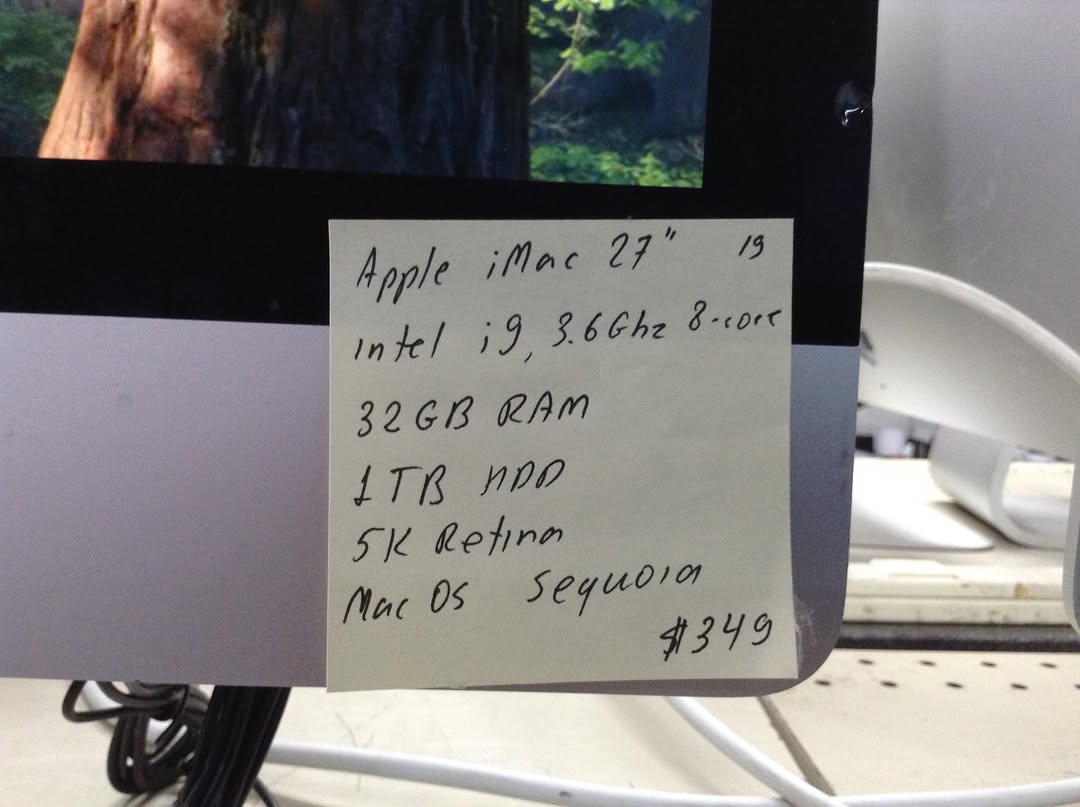 Apple iMac 27" 19
intel i9, 3.6Ghz 8-core
32GB RAM
1TB HDD
5K Retina
Mac OS Sequoia
$349